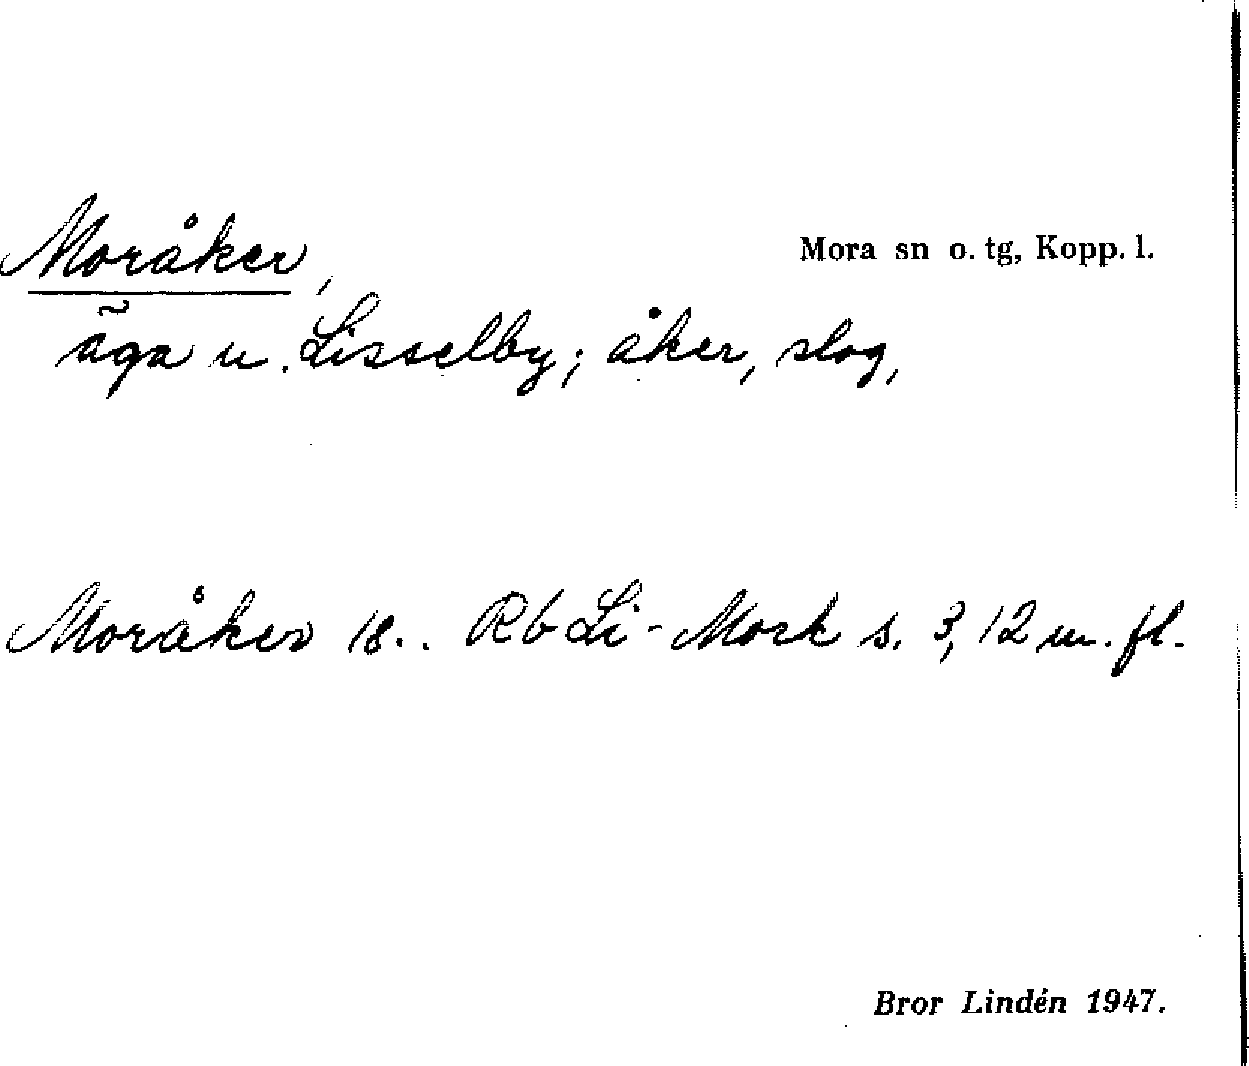 Moråker,
Mora sn o. tg, Kopp. l.
äga u. Lisselby; åker, slog,
Moråker 18.. Rb Li-Mork s. 3, 12 m. fl.
Bror Lindén 1947.